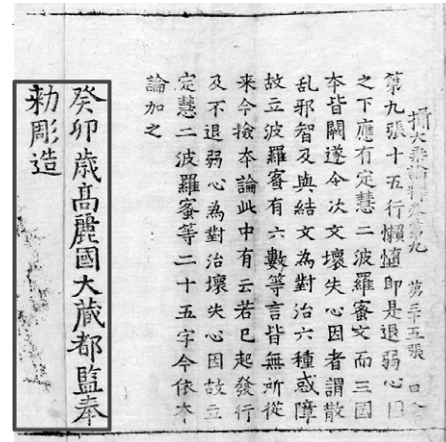 攝大乘論釋卷第九　第三十五張　日
第九張十五行懶惰即是退弱心因
之下應有定慧二波羅蜜文而三國
本皆闕遂令次文壞失心因者謂散
乱邪智及與結文為對治六種或障
故立波羅蜜有六數等言皆無所從
来今撿夲論此中有云若已起發行
及不退弱心為對治壞失心因故立
定慧二波羅蜜等二十五字今依夲
論加之
癸卯歳高麗國大藏都監奉
勑彫造